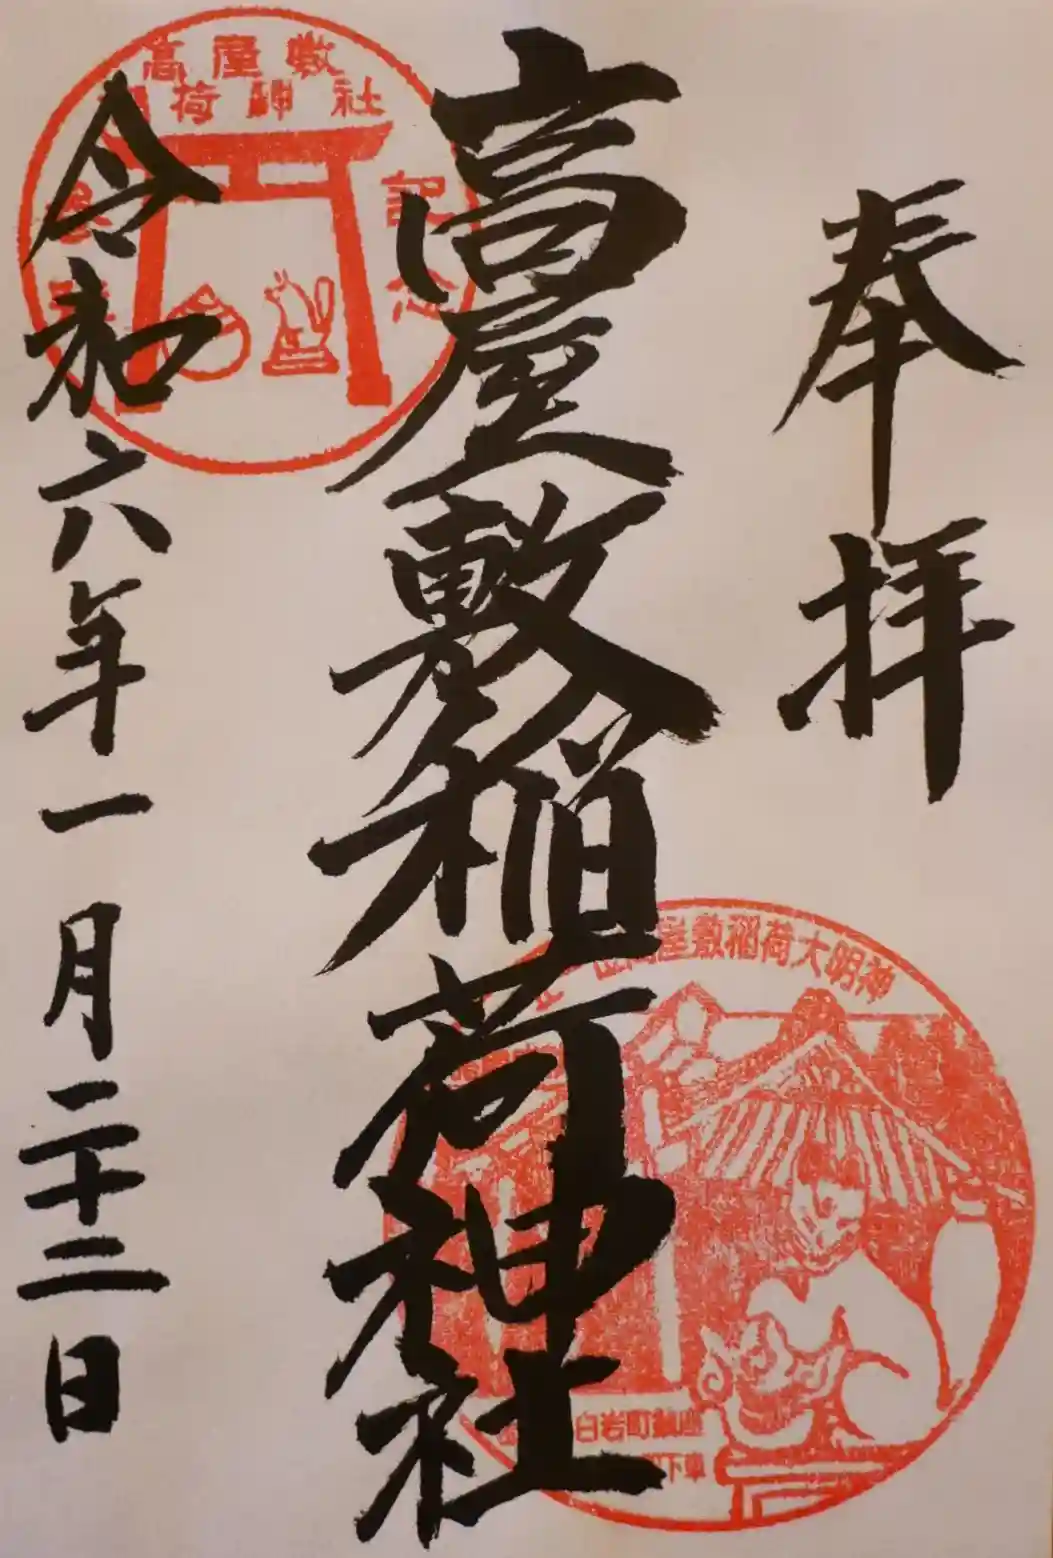 奉拝
高屋敷稲荷神社
令和六年一月二十二日
高屋敷
稲荷神社
記念
屋敷稲荷大明神
白岩町鎮座
下車